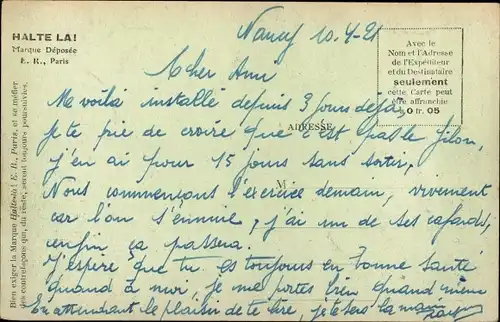 HALTE LÀ!
Marque Déposée
E. R., Paris
Bien exiger la Marque Halte-là! E. R., Paris, et se méfier
des contrefaçons qui, du reste, seront toujours poursuivies.
Avec le
Nom et l'Adresse
de l'Expéditeur
et du Destinataire
seulement
cette Carte peut
être affranchie
à 0 fr. 05
ADRESSE
M
Nancy 10-4-21
Cher Ami
Me voilà installé depuis 3 jours déjà,
Je te prie de croire que c'est pas le filon,
j'en ai pour 15 jours sans sortir,
Nous commençons l'exercice demain, vivement
car l'on s'ennuie, j'ai un de ses cafards,
enfin ça passera.
J'espère que tu es toujours en bonne santé
quand à moi, je me portes bien quand même
En attendant le plaisir de te lire, je te sers la main